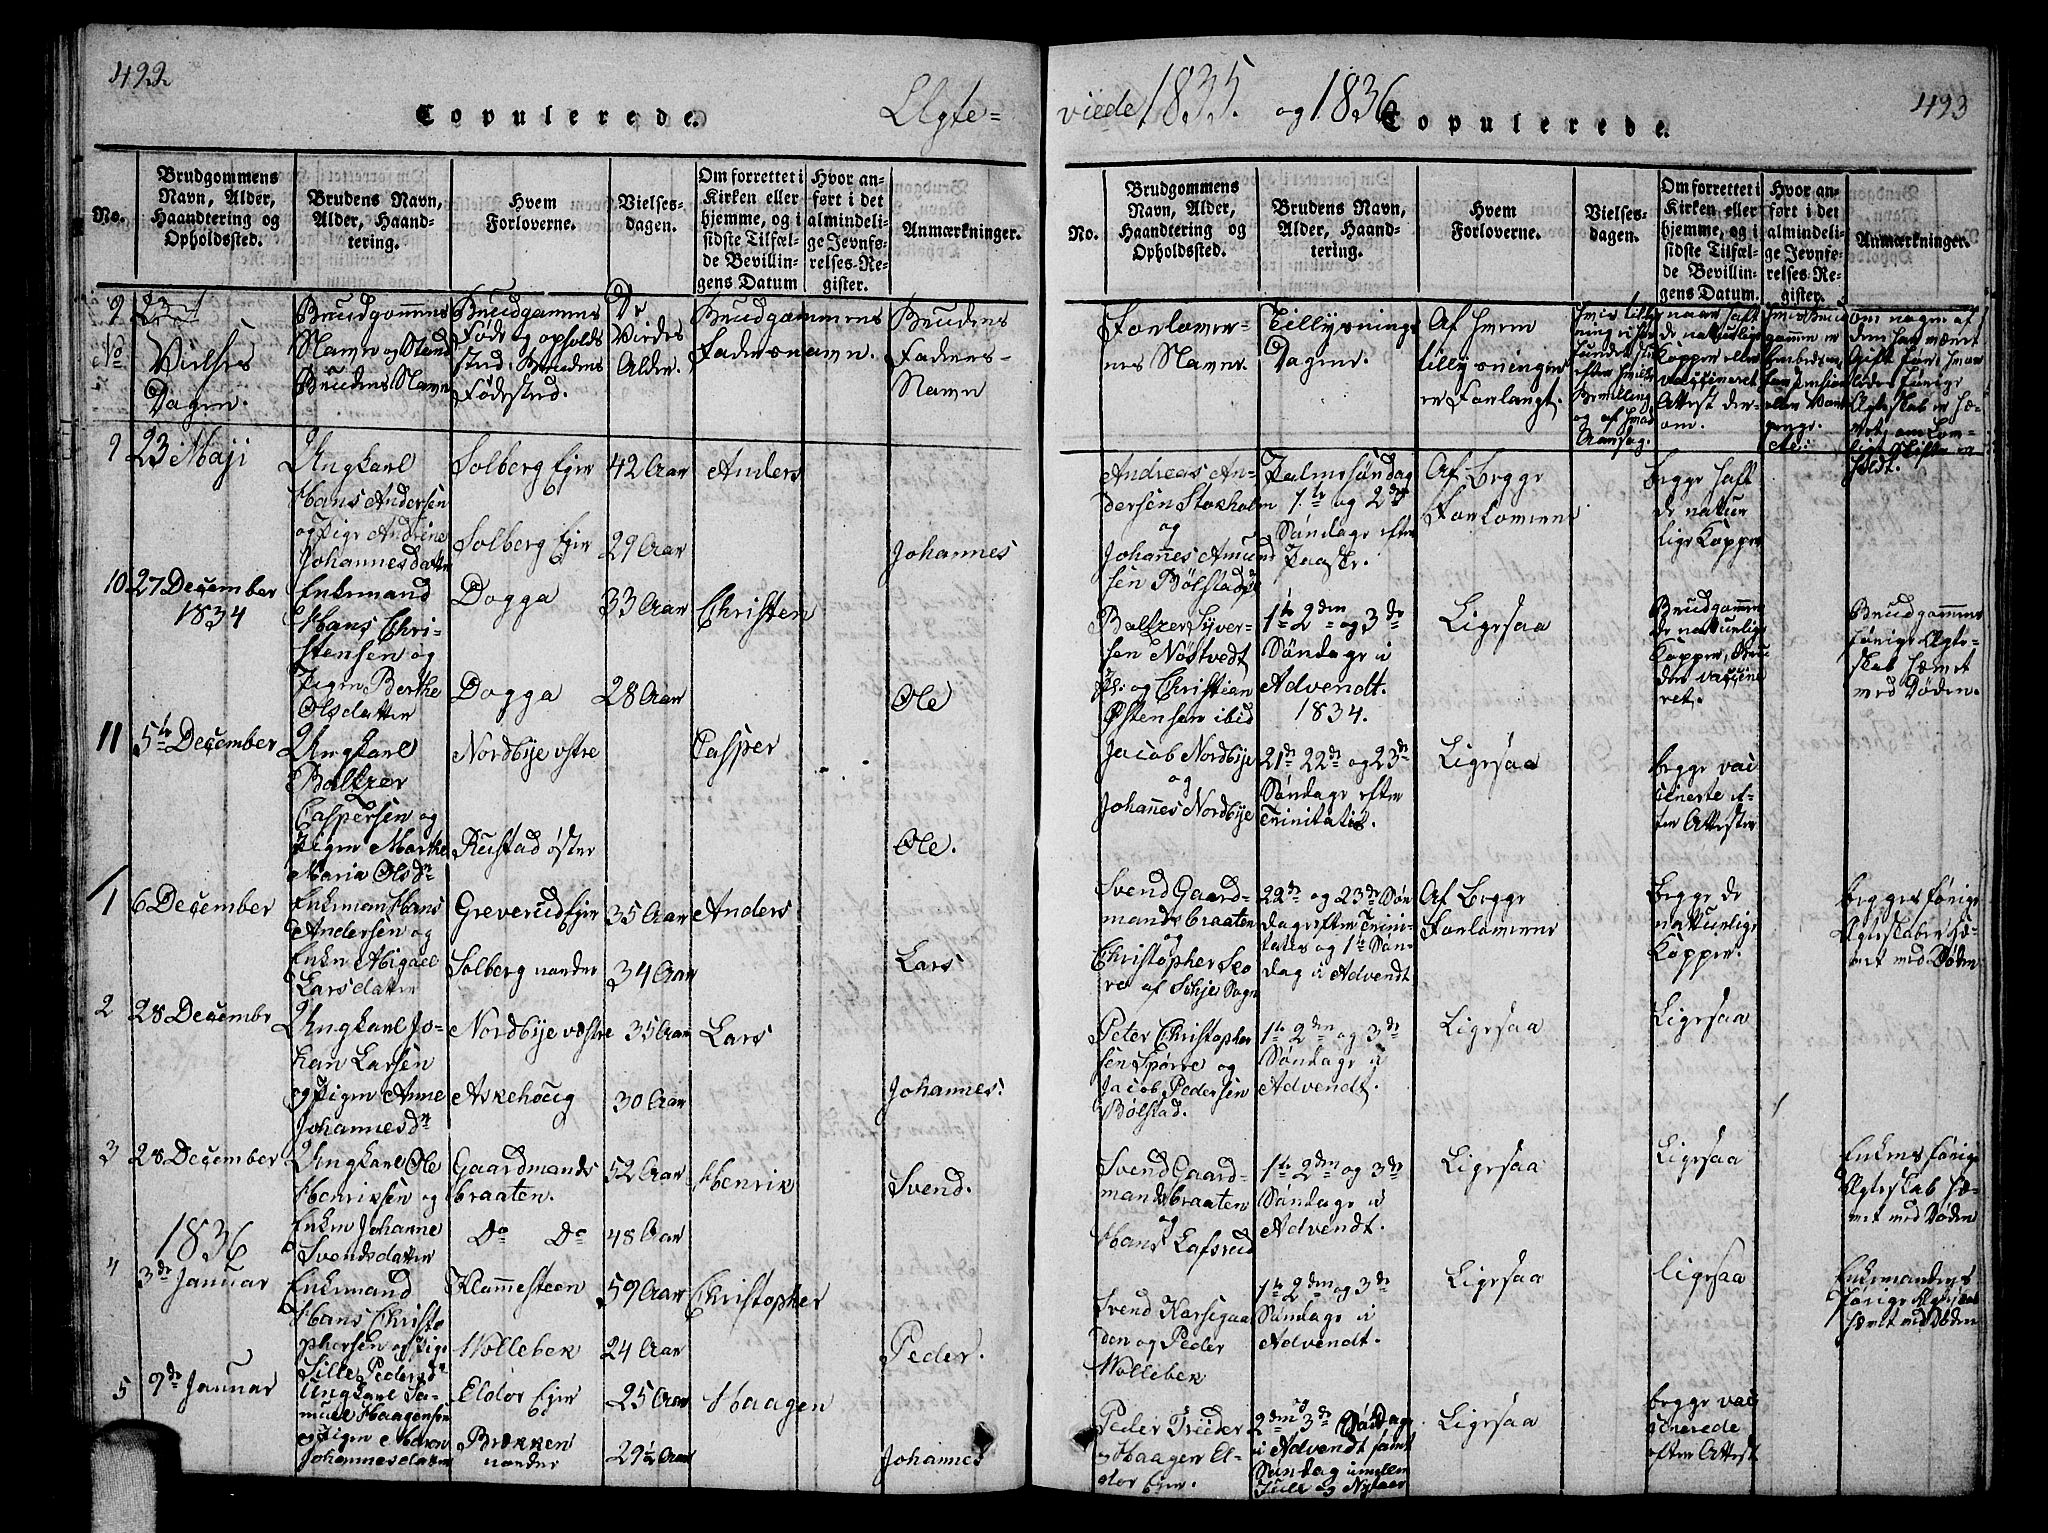 422
Copulerede.
Ægte=
No.
Brudgommens
Navn, Alder,
Haandtering og
Opholdssted.
Brudens Navn,
Alder, Haand-
tering.
Hvem
Forloverne.
Vielses-
dagen.
Om forrettet i
Kirken eller
hjemme, og i
sidste Tilfæl-
de Bevillin-
gens Datum
Hvor an-
ført i det
almindeli-
ge Jevnfø-
relses-Re-
gister.
Anmærkninger.
No
Vielses
Dagen.
Brudgommens
Navn og Stand
Brudens Navn
Brudgommens
Føde og opholds
sted, Brudens
Fødested.
De
Viedes
Alder.
Brudgommens
Faders navn.
Brudens
Faders
Navn
9 23 Maji
Ungkarl
Hans Andersen
og Pige Andrine
Johannesdatter
Solberg Ejer
Solberg Ejer
42 Aar
29 Aar
Anders
Johannes
10 27 December
1834
Enkemand
Hans Chri-
stensen og
Pigen Berthe
Olsdatter
Dogga
Dogga
33 Aar
28 Aar
Christen
Ole
11 5te December
Ungkarl
Baltzer
Caspersen og
Pigen Marthe
Maria Olsdr
Nordbye vstre
Rustad øster
Casper
Ole.
1 6 December
Enkeman Hans
Andersen og
Enke Abigael
Larsdatter
Greverud Ejer
Solberg nordre
35 Aar
34 Aar
Anders
Lars
2 28 Decembr
Ungkarl Jo-
han Larsen
og Pigen Anne
Johannesdr
Nordbye vestre
Askehoug
35 Aar
30 Aar
Lars
Johannes.
3 28 December
Ungkarl Ole
Henriksen og
Enken Johanne
Svendsdatter
Gaardmands
braaten.
Do Do
52 Aar
48 Aar
Henrik
Svend.
1836
4 3de Januar
Enkemand
Hans Christo
phersen og Pige
Sille Pedersdr
Klommesteen
Wollebek
59 Aar
24 Aar
Christopher
Peder.
5 9de Januar
Ungkarl Sa-
muel Haagensen
og Pigen Maren
Johannesdatter
Eldor Ejer
Brekken
nordre
25 Aar
29½ Aar
Haagen
Johannes
viede 1835. og 1836
Copulerede.
423
No.
Brudgommens
Navn, Alder,
Haandtering og
Opholdssted.
Brudens Navn,
Alder, Haand-
tering.
Hvem
Forloverne.
Vielses-
dagen.
Om forrettet i
Kirken eller
hjemme, og i
sidste Tilfæl-
de Bevillin-
gens Datum.
Hvor an-
ført i det
almindeli-
ge Jevnfø-
relses-Re-
gister.
Anmærkninger.
Forlover-
nes Navne.
Tillysnings
Dagene.
Af hvem
tillysningen
er Forlangt.
naar haft
de naturlige
Kopper eller
vaccineret
Attest der-
om.
Andreas An-
dersen Stokholm
og
Johannes Amund
sen Bølstad
Palmesøndag
1te og 2den
Søndage efter
Paaske.
Af Begge
Forloverne
begge haft
de natur
lige Kopper
Baltzer Syver-
sen Nøstvedt
og Christian
Østensen ibid
1te 2den og 3de
Søndage i
Advendt.
1834.
Ligesaa
Brudgommen
de naturlige
Kopper, Bru
den vaccine
ret.
Brudgommens
forige Ægte-
skab hævet
med Døden.
Jacob Nordbye
og
Johannes Nordbye
21de 22de og 23de
Søndage efter
Trinitatis.
Ligesaa
begge vac
cinerte ef-
ter Attester
Svend Gaard-
mandsbraaten
og
Christopher Sko
re af Schje Sogn
22de og 23de Søn
dage efter Trini-
tatis og 1te Søn-
dag i Advendt
Af Begge
Forloverne
begge de
naturlige
Kopper.
begges forige
Ægteskaber hæ-
vet med Døden
Peter Christopher
sen Spørre og
Jacob Pedersen
Bølstad.
1te 2den og 3de
Søndage i
Advendt.
Ligesaa
Ligesaa
Svend Gaard-
mandsbraaten
og
Hans Lafsrud
1te 2den og 3de
Søndage i
Advendt.
Ligesaa
Ligesaa
Enkens forige
Ægteskab hæ-
vet med Døden
Svend Karsegaar
den og Peder
Wollebek
1te 2den og 3de
Søndage i
Advendt.
Ligesaa
ligesaa
Enkemandens
forige Ægteskab
hævet med Døden
Peder Treider
og Haagen El-
dor Ejer.
2den og 3de Søndag
i Advendt samt
Søndag imellem
Juul og Nytaar
Ligesaa
begge vac
cinerede
efter Attest